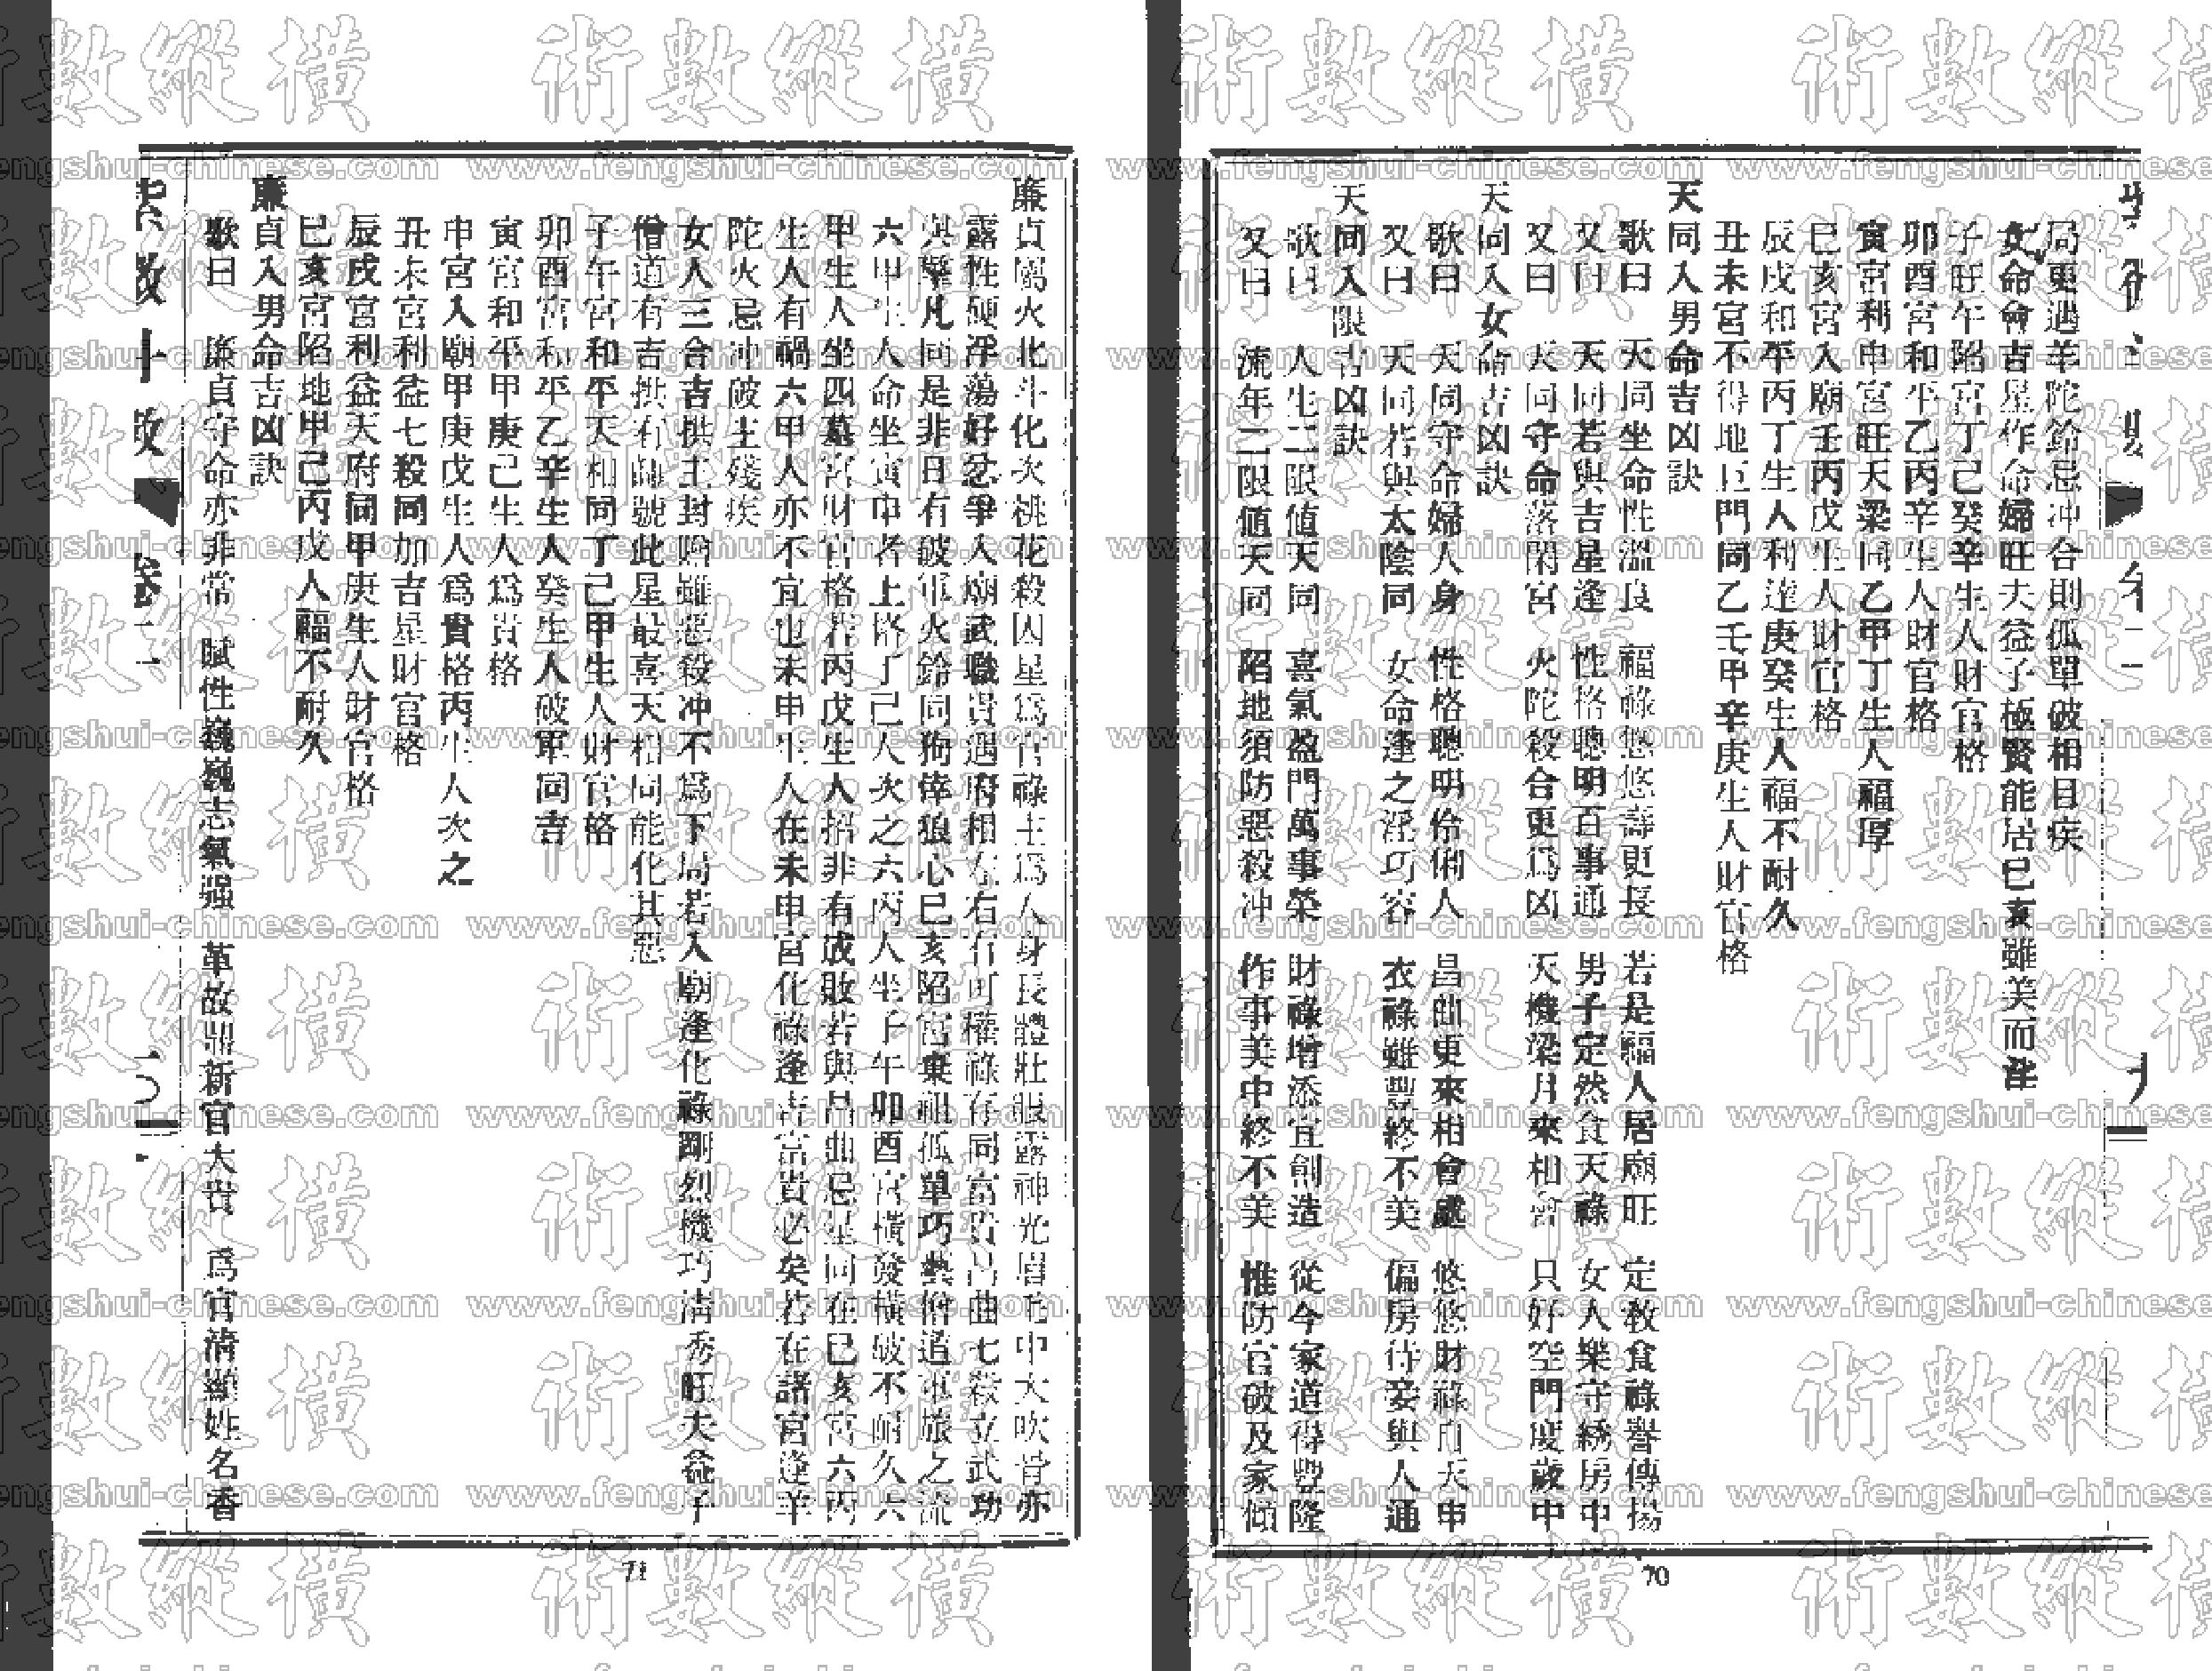 局更遇羊陀鈴忌冲合則孤單破相目疾
女命會吉星作命婦旺夫益子極賢能居巳亥雖美而淫
子旺午陷宮丁己癸辛生人財官格
卯酉宮和平乙丙辛生人財官格
寅宮利申宮旺天梁同乙甲丁生人福厚
巳亥宮入廟壬丙戊生人財官格
辰戌和平丙丁生人利達庚癸生人福不耐久
丑未宮不得地巨門同乙壬甲辛庚生人財官格
天同入男命吉凶訣
歌曰 天同坐命性溫良 福祿悠悠壽更長 若是福人居廟旺 定教食祿譽傳揚
又曰 天同若與吉星逢 性格聰明百事通 男子定然食天祿 女人樂守綉房中
又曰 天同守命落閑宮 火陀殺合更爲凶 天機梁月來相會 只好空門度歲中
天同入女命吉凶訣
歌曰 天同守命婦人身 性格聰明伶俐人 昌曲更來相會處 悠悠財祿自天申
又曰 天同若與太陰同 女命逢之淫巧容 衣祿雖豐終不美 偏房侍妾與人通
天同入限吉凶訣
歌曰 人生二限値天同 喜氣盈門萬事榮 財祿增添宜創造 從今家道得豐隆
又曰 流年二限値天同 陷地須防惡殺冲 作事美中終不美 惟防官破及家傾
70
廉貞屬火北斗化次桃花殺囚星爲官祿主爲人身長體壯眼露神光眉毛中大吹骨亦
露性硬浮蕩好忿爭入廟武職貴遇府相左右有可權祿存同富貴昌曲七殺立武功
與擎凡同是非日有破軍火鈴同狗倖狼心巳亥陷宮棄祖孤單巧藝僧道軍旅之流
六甲生人命坐寅申者上格丁己人次之六丙人坐子午卯酉宮橫發橫破不耐久六
甲生人坐四墓宮財官格若丙戊生人招非有成敗若與昌曲忌星同在巳亥宮六丙
生人有禍六甲人亦不宜也未申生人在未申宮化祿逢吉富貴必矣若在諸宮逢羊
陀火忌冲破主殘疾
女人三合吉拱主封贈雖惡殺冲不爲下局若入廟逢化祿剛烈機巧清秀旺夫益子
僧道有吉拱有師號此星最喜天相同能化其惡
子午宮和平天相同丁己甲生人財官格
卯酉宮和平乙辛生人癸生人破軍同吉
寅宮和平甲庚己生人爲貴格
申宮入廟甲庚戊生人爲貴格丙生人次之
丑未宮利益七殺同加吉星財官格
辰戌宮利益天府同甲庚生人財官格
巳亥宮陷地甲己丙戊人福不耐久
廉貞入男命吉凶訣
歌曰 廉貞守命亦非常 賦性巍巍志氣强 革故鼎新官大貴 爲官淸顯姓名香
71